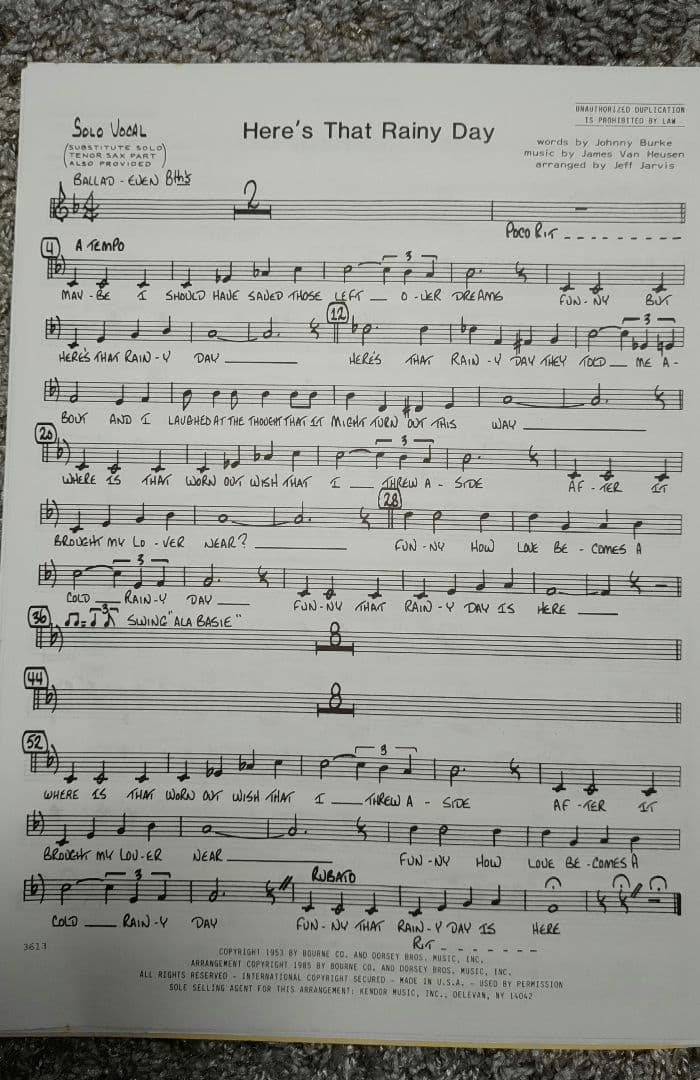 UNAUTHORIZED DUPLICATION
IS PROHIBITED BY LAW
SOLO VOCAL
Here's That Rainy Day
(SUBSTITUTE SOLO
TENOR SAX PART
ALSO PROVIDED)
words by Johnny Burke
music by James Van Heusen
arranged by Jeff Jarvis
BALLAD - EVEN 8ths
2
POCO RIT _ _ _ _ _ _ _ _
4 A TEMPO
3
MAY - BE I SHOULD HAVE SAVED THOSE LEFT __ O - VER DREAMS FUN - NY BUT
12 3
HERE'S THAT RAIN - Y DAY ________ HERE'S THAT RAIN - Y DAY THEY TOLD __ ME A -
BOUT AND I LAUGHED AT THE THOUGHT THAT IT MIGHT TURN OUT THIS WAY ________
20 3
WHERE IS THAT WORN OUT WISH THAT I __ THREW A - SIDE AF - TER IT
28
BROUGHT MY LO - VER NEAR? ________ FUN - NY HOW LOVE BE - COMES A
3
COLD __ RAIN - Y DAY ____ FUN - NY THAT RAIN - Y DAY IS HERE ____
36 3 SWING "ALA BASIE"
8
44
8
52 3
WHERE IS THAT WORN OUT WISH THAT I ___ THREW A - SIDE AF - TER IT
BROUGHT MY LOV - ER NEAR ________ FUN - NY HOW LOVE BE - COMES A
3 RUBATO
COLD ___ RAIN - Y DAY FUN - NY THAT RAIN - Y DAY IS HERE
RIT _ _ _ _ _ _ _
3613
COPYRIGHT 1953 BY BOURNE CO. AND DORSEY BROS. MUSIC, INC.
ARRANGEMENT COPYRIGHT 1985 BY BOURNE CO. AND DORSEY BROS. MUSIC, INC.
ALL RIGHTS RESERVED - INTERNATIONAL COPYRIGHT SECURED - MADE IN U.S.A. - USED BY PERMISSION
SOLE SELLING AGENT FOR THIS ARRANGEMENT: KENDOR MUSIC, INC., DELEVAN, NY 14042